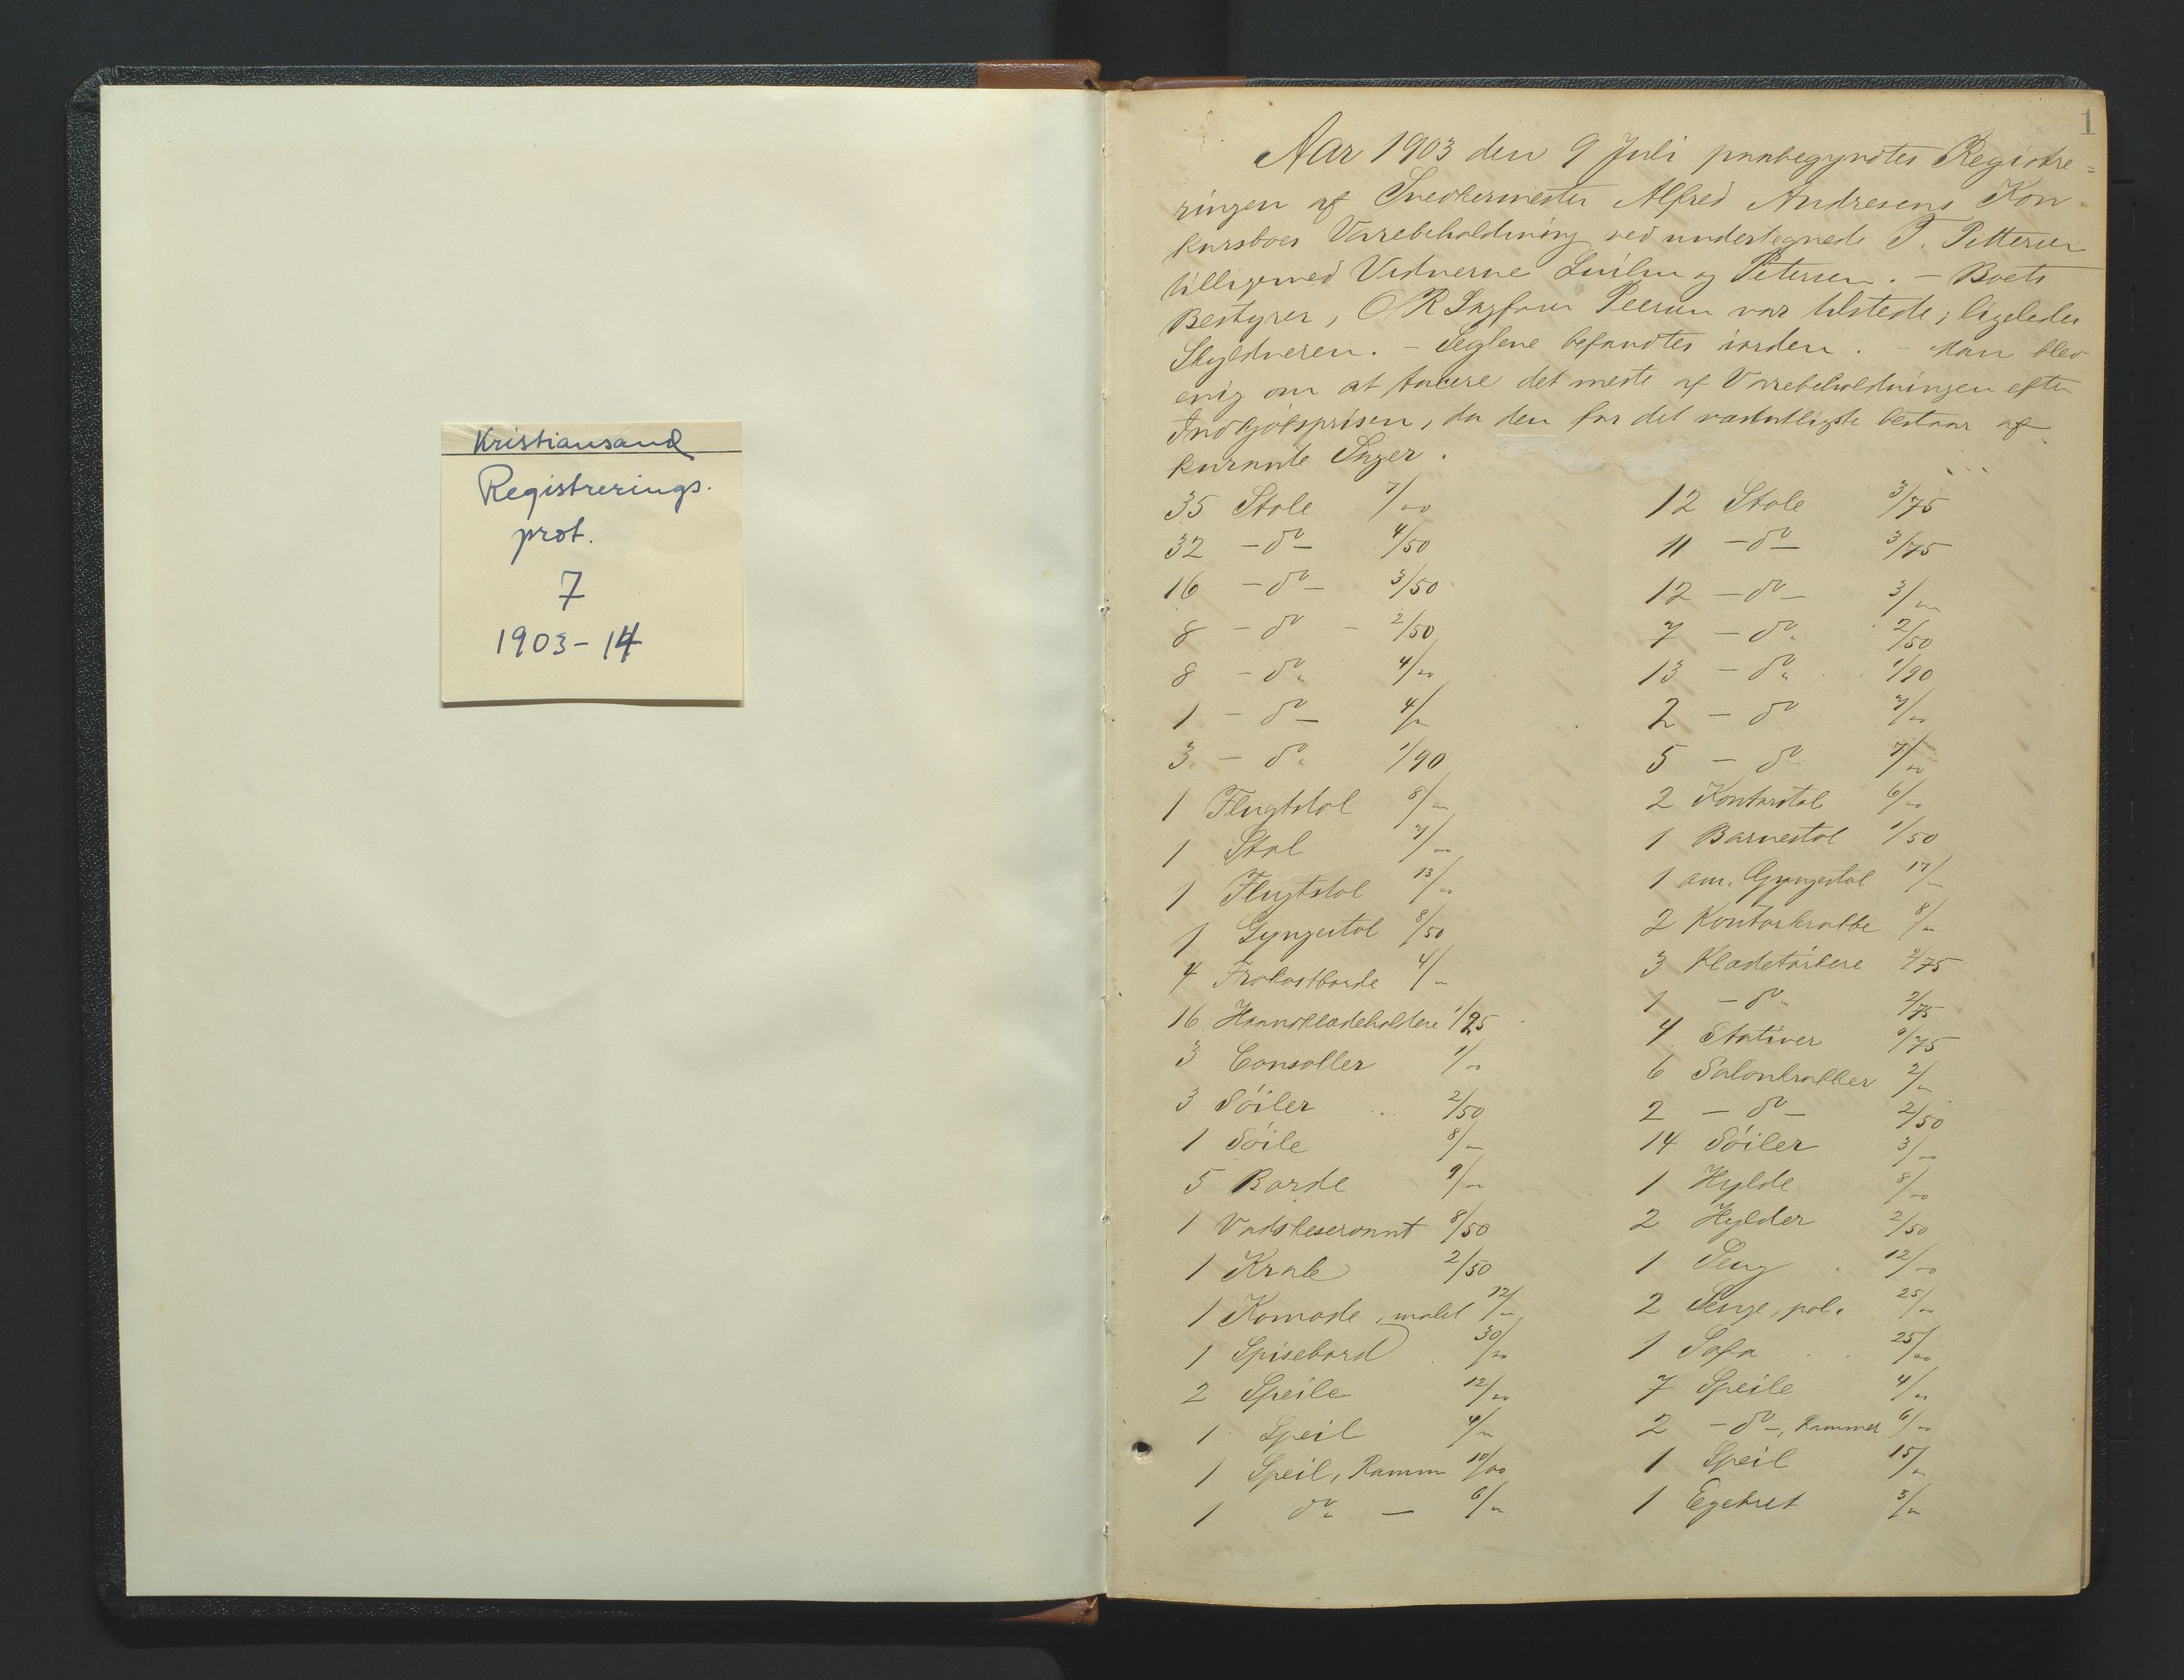 Kristiansand
Registrerings.
prot.
7
1903-14
1
Aar 1903 den 9 Juli paabegyndtes Registre=
ringen af Snedkermester Alfred Andresens Kon=
kursboes Varebeholdning ved undertegnede T. Pettersen
tilligemed Vidnerne og Petersen. - Boets
Bestyrer, O R Sagfører var tilstede; ligeledes
Skyldneren. - Seglene befandtes iorden. - Man blev
enig om at taxere det meste af Varebeholdningen efter
Indkjøbsprisen, da den for det væsentligste bestaar af
kurante Sager.
35 Stole 7/00
32 - do - 4/50
16 - do - 3/50
8 - do - 2/50
8 - do " 4/00
1 - do - 4/00
3 - do " 1/90
1 Flugtstol 8/00
1 Stol 7/00
1 Flugtstol 13/00
1 Gyngestol 8/50
4 Frokostborde 4/00
16 Haandklædeholdere 1/25
3 Consoller 1/00
3 Søiler 2/50
1 Søile 8/00
5 Borde 9/00
1 Vadskeservant 8/50
1 Krak 2/50
1 Komode, malet 12/00
1 Spisebord 30/00
2 Speile 12/00
1 Speil 4/00
1 Speil, Ramme 10/00
1 do " - 6/00
12 Stole 3/75
11 - do - 3/75
12 - do - 3/00
7 - do " 2/50
13 - do " 1/90
2 - do 7/00
5 - do 7/00
2 Kontorstol 6/00
1 Barnestol 1/50
1 am. Gyngestol 17/00
2 Kontorkrakke 8/00
3 Klædetørkere 2/75
1 - do " 2/75
4 Stativer /75
6 Salonkrakker 2/00
2 - do - 2/50
14 Søiler 3/00
1 Hylde 8/00
2 Hylder 2/50
1 Seng 12/00
2 Senge, pol. 25/00
1 Sofa 25/00
7 Speile 4/00
2 - do -, Rammer 6/00
1 Speil 15/00
1 3/00